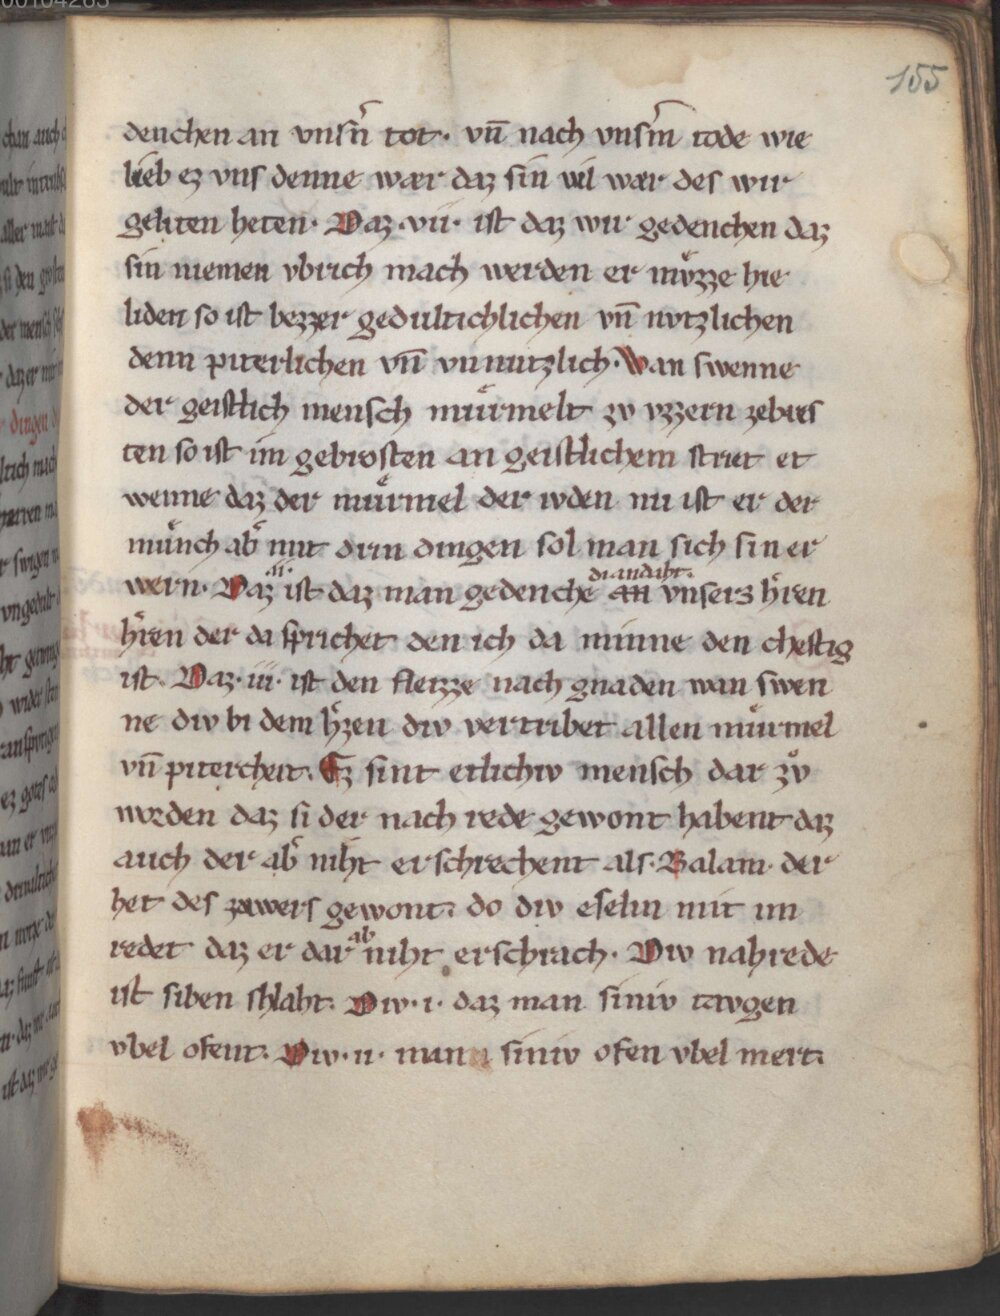 155
denchen an vnsn̄ tot · vn̄ nach vnsm̄ tode wie
lieb ez vns denne wær daz sin vil wær des wir
geliten heten · Daz · vii · ist daz wir gedenchen daz
sin niemen vbrich mach werden er mv̊zze hie
liden so ist bezzer gedultichlichen vn̄ nvtzlichen
denn piterlichen vn̄ vnnutzlich · Wan swenne
der geistlich mensch mu̇rmelt zv vzzern zebres
ten so ist im gebrosten an geistlichem strit et
wenne daz der mu̇rmel der ivden nu ist er der
mu̇nch ab̄ mit drin dingen sol man sich sin er
wern · Daz · ii · ist daz man gedenche diandaht · an vnsers hr̄en
hr̄en der da sprichet den ich da minne den chestig
ist · Daz · iii · ist den fleizze nach gnaden wan swen
ne div bi dem hr̄zen div vertribet allen mu̇rmel
vn̄ piterchеit · Ez sint etlichiv mensch dar zv̊
worden daz si der nach rede gewont habent daz
auch der ab̄ niht erschrechent als · Balam · der
het des zawers gewont · do div eselin mit im
redet daz er dar ab niht erschrach · Div nahrede
ist siben slaht · Div · i · daz man siniv tavgen
vbel ofent · Div · ii · man siniv ofen vbel mert ·